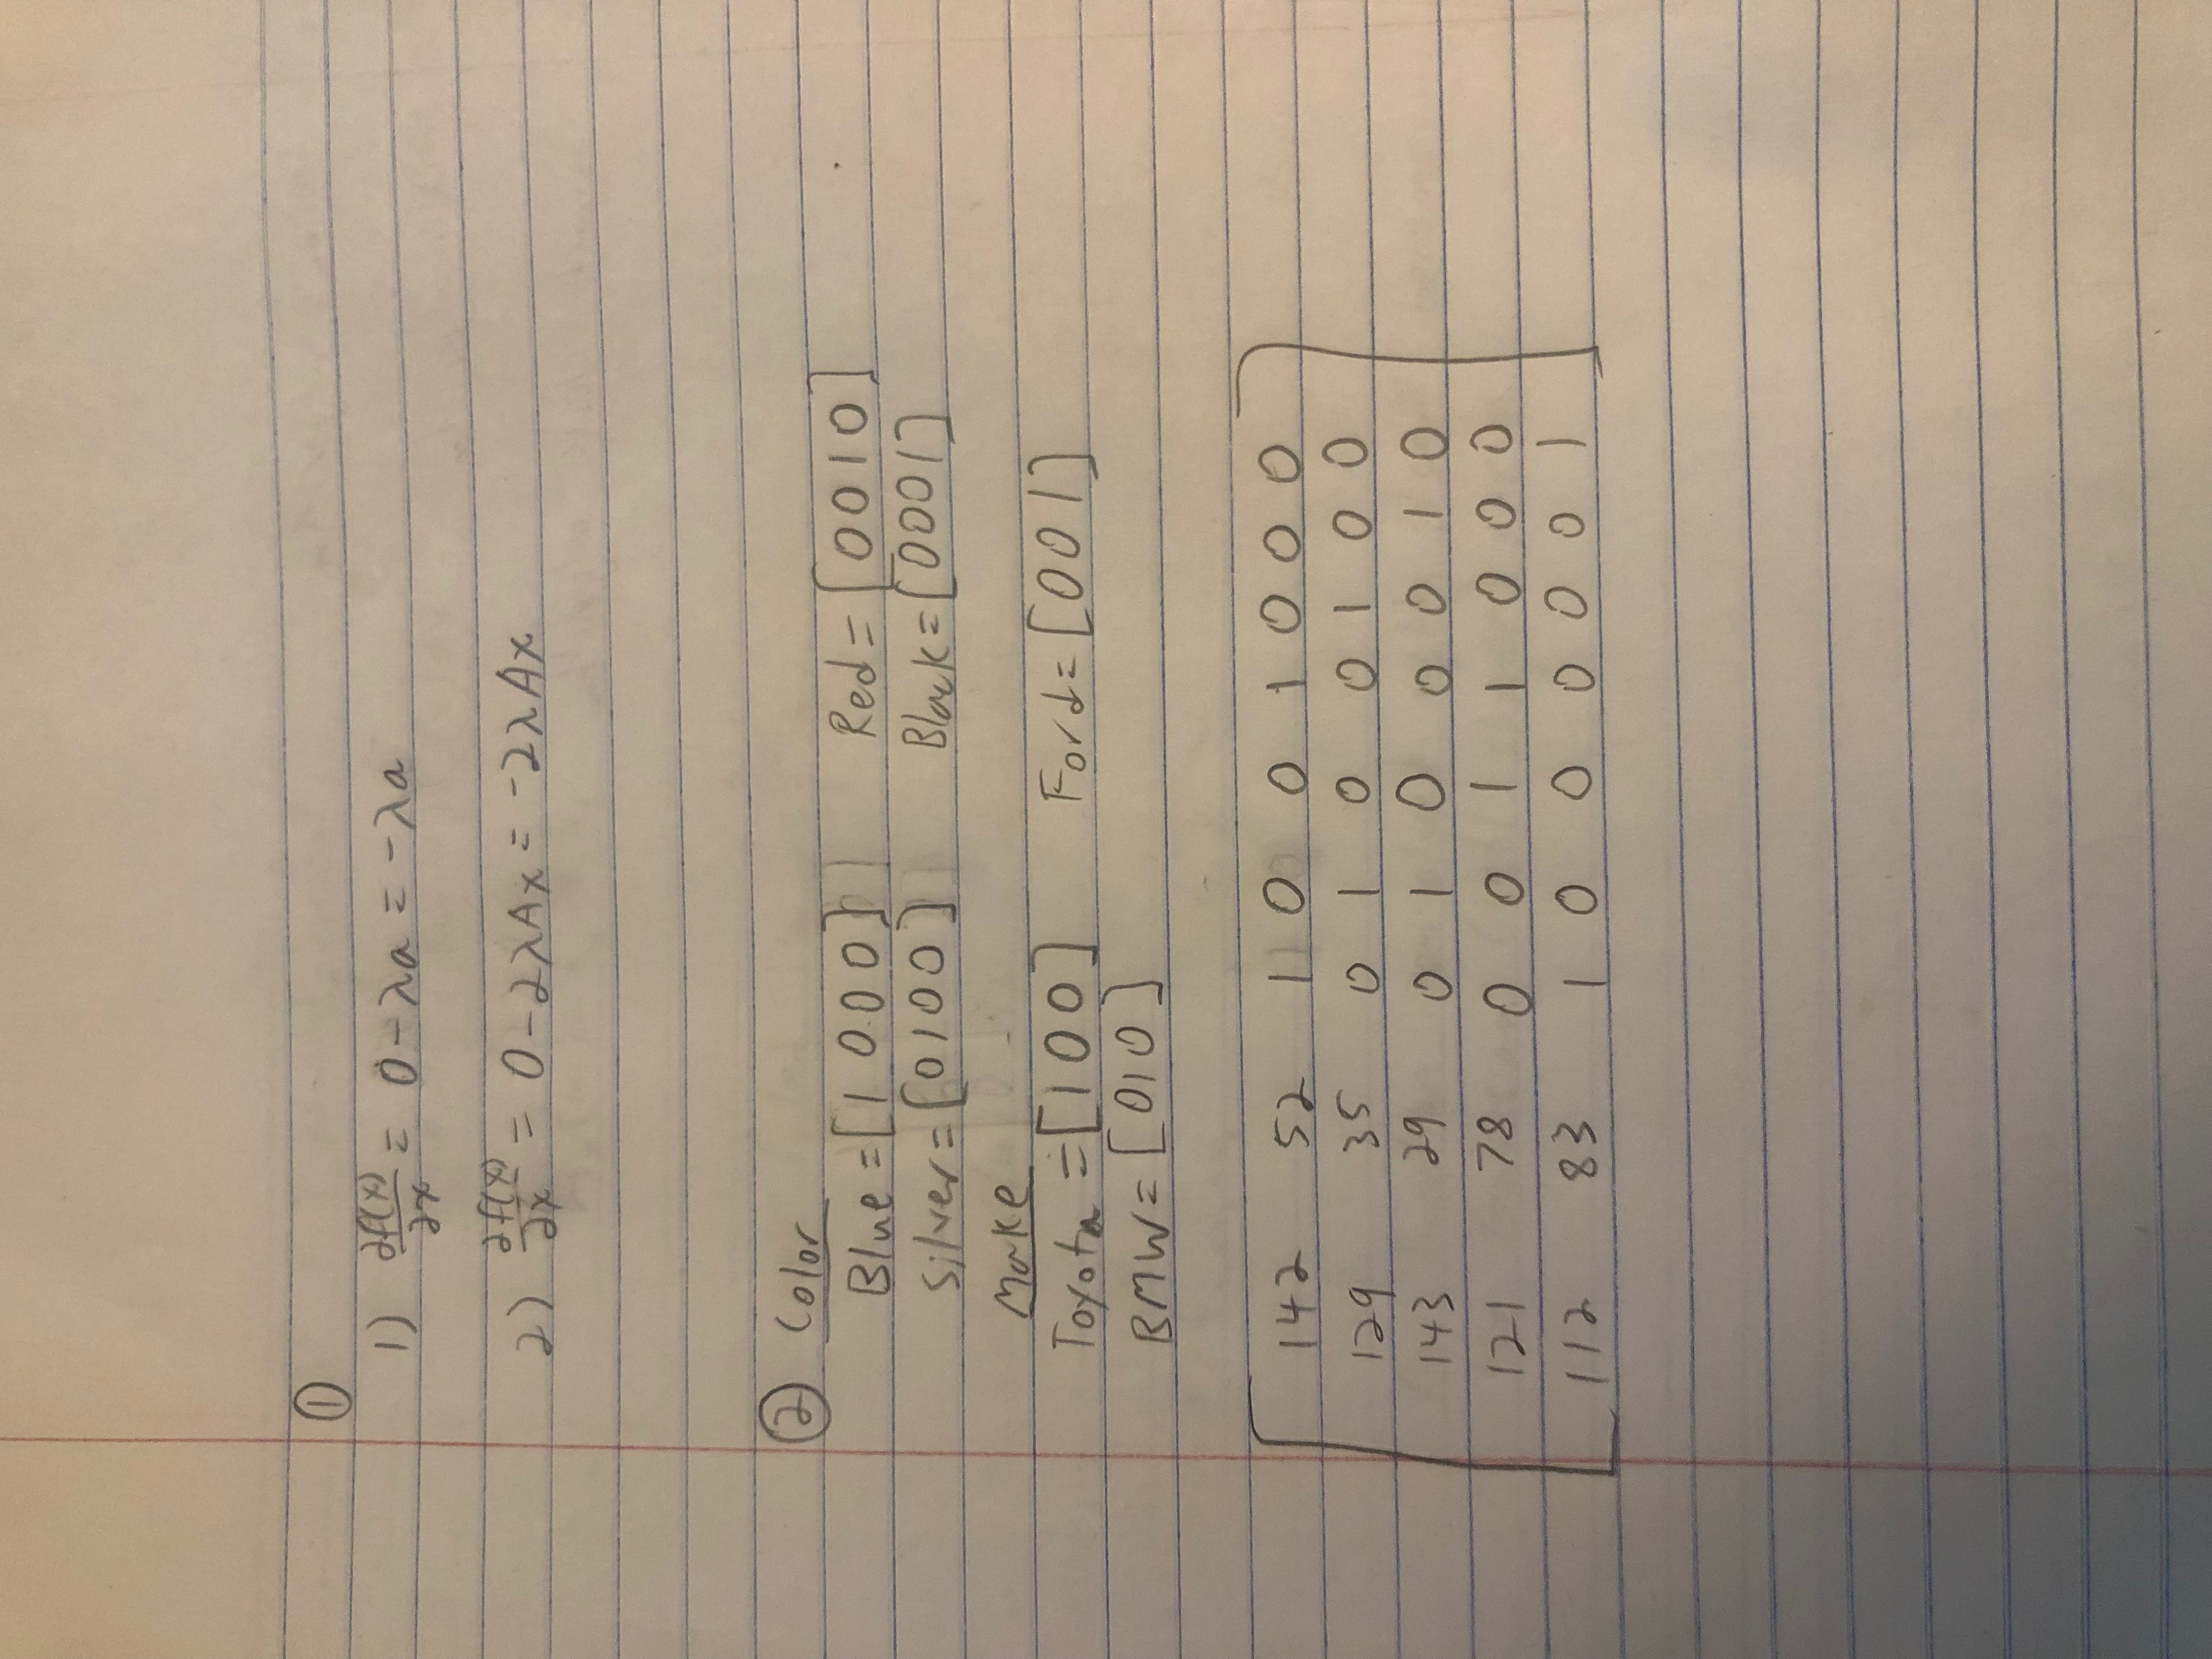 ①
1) ∂f(x)/∂x = 0 - λa = -λa
2) ∂f(x)/∂x = 0 - 2λAx = -2λAx
② Color
Blue = [1 0 0 0] Red = [0 0 1 0]
Silver = [0 1 0 0] Black = [0 0 0 1]
Make
Toyota = [1 0 0] Ford = [0 0 1]
BMW = [0 1 0]
142 52 1 0 0 1 0 0 0
129 35 0 1 0 0 1 0 0
143 29 0 1 0 0 0 1 0
121 78 0 0 1 1 0 0 0
112 83 1 0 0 0 0 0 1